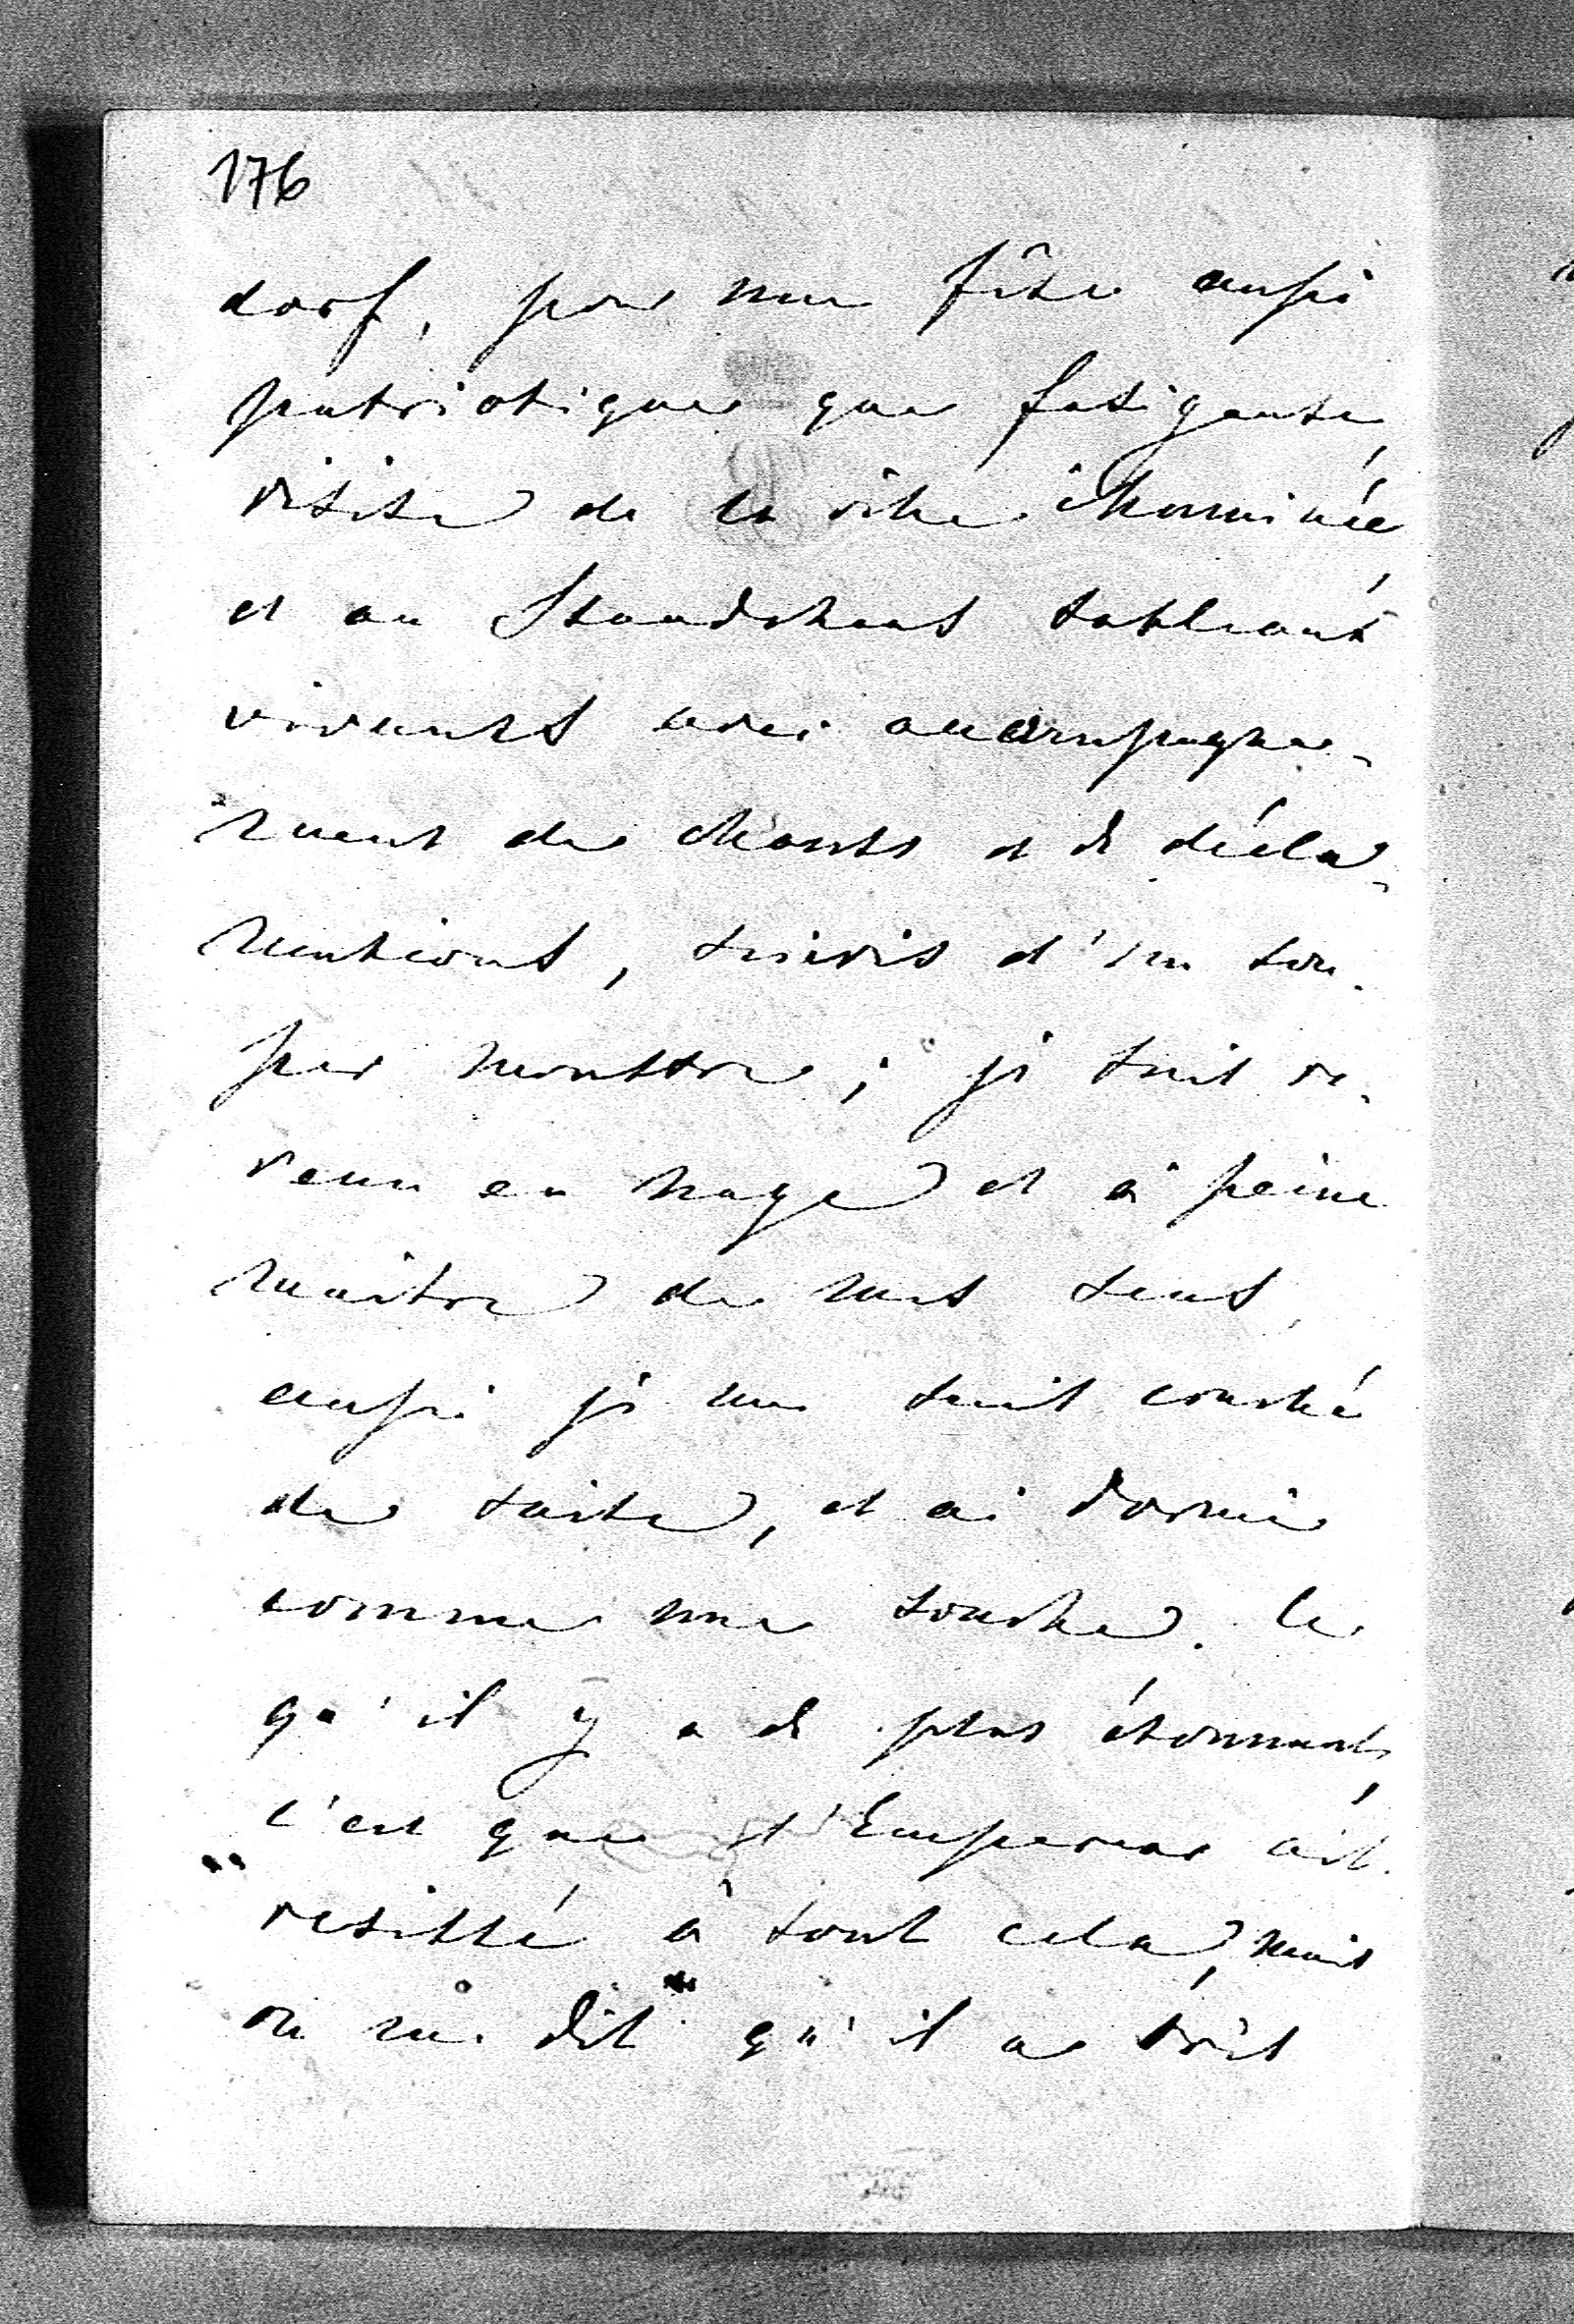 176
dorf, pour une fête aussi
patriotique que fatigante,
visite de la ville illuminée,
et au Staendehaus tableaux
vivants avec accompagne-
ment de chants et de décla-
mations, suivis d'un sou-
per monstre; je suis re-
venu en nage et à peine
maitre de mes sens,
aussi je me suis couché
de suite, et ai dormi
comme une souche. Ce
qu'il y a de plus étonnant,
c'est que l'Empereur ait
resisté à tout cela, mais
on me dit qu'il a très